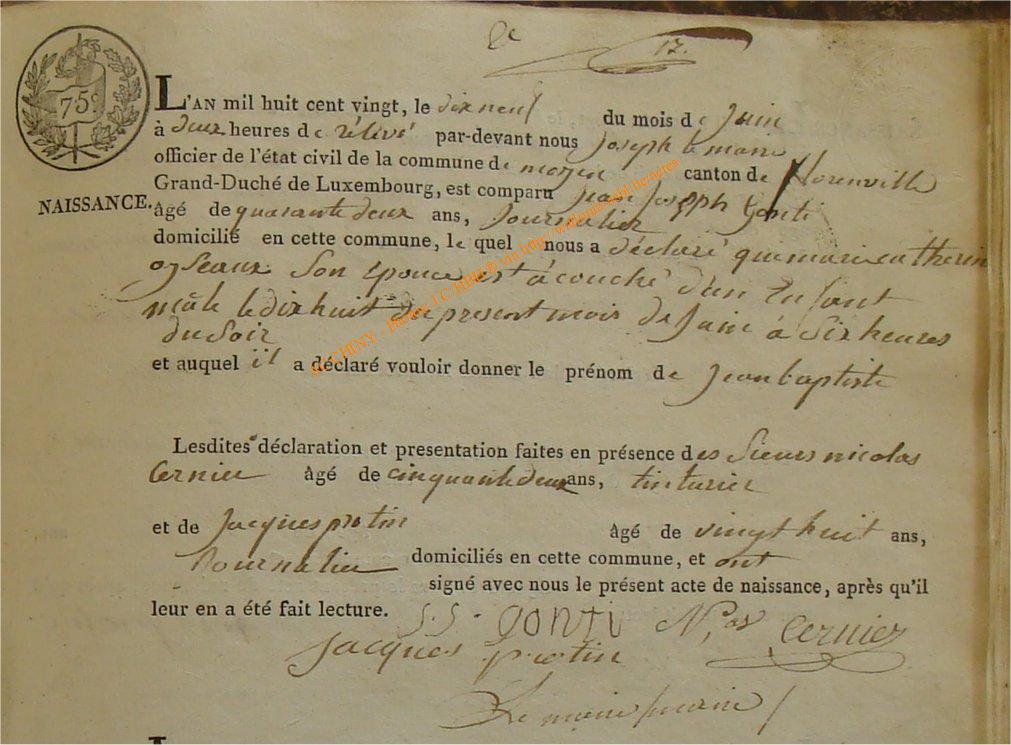 2e 12.
75c
L'AN mil huit cent vingt, le dixneuf du mois de Juin
à deux heures de rélévé par-devant nous Joseph le maire
officier de l'état civil de la commune de moyen canton de florenville
Grand-Duché de Luxembourg, est comparu jean joseph Gonti
NAISSANCE.
âgé de quarante deux ans, Journalier
domicilié en cette commune, le quel nous a déclaré que marie catherin
oyseaux Son Epouce est acouché d'un Enfant
mâle le dix huit du present mois de Juin à Six heures
du Soir
et auquel il a déclaré vouloir donner le prénom de Jean baptiste
Lesdites déclaration et presentation faites en présence des Sieurs nicolas
Cernier âgé de cinquante deux ans, tinturier
et de Jacques protin âgé de vingt huit ans,
Journalier domiciliés en cette commune, et ont
signé avec nous le présent acte de naissance, après qu'il
leur en a été fait lecture. J.J. gonti N,as Cernier
jacques protin
Le maire